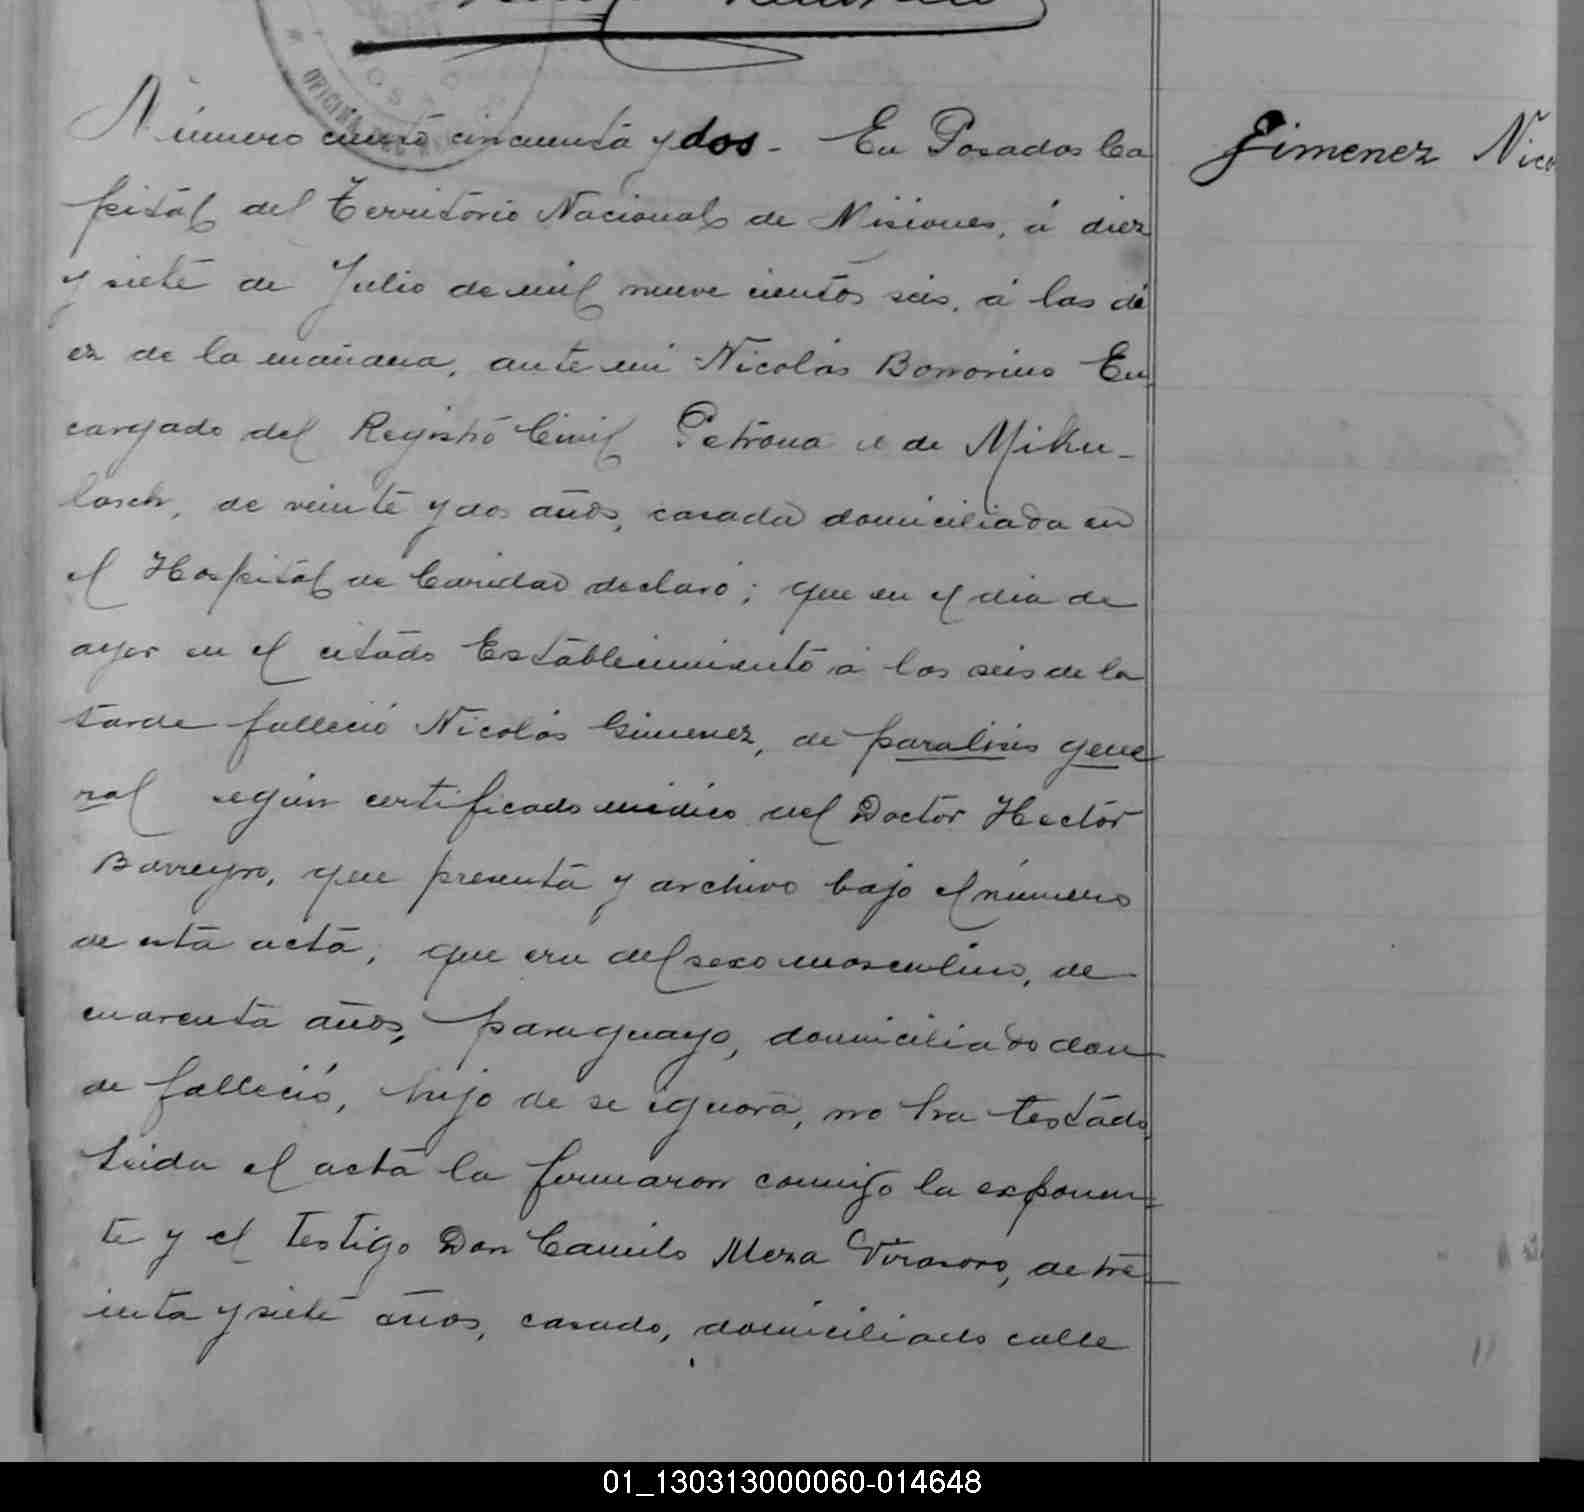 OFICINA
Número ciento cincuenta y dos - En Posadas Ca
pital del Territorio Nacional de Misiones, á diez
y siete de Julio de mil nueve cientos seis, á las di
ez de la mañana, ante mi Nicolás Borrorino En
cargado del Registro Civil Petrona de Miku-
lasch, de veinte y dos años, casada domiciliada en
el Hospital de Caridad declaró; que en el dia de
ayer en el citado Establecimiento á las seis de la
tarde falleció Nicolás Gimenez, de paralisis gene
ral según certificado médico del Doctor Hector
Barreyro, que presenta y archivo bajo el número
de esta acta, que era del sexo masculino, de
cuarenta años, paraguayo, domiciliado don
de falleció, hijo de se ignora, no ha testado
Leida el acta la firmaron conmigo la exponen
te y el testigo Don Camilo Meza Virasoro, de tre
inta y siete años, casado, domiciliado calle
Jimenez Nico
01_130313000060-014648